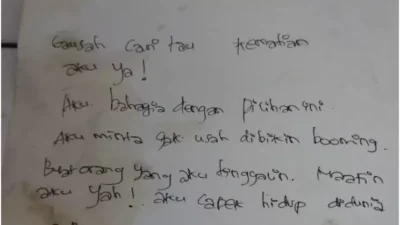 Gausah cari tau kematian
aku ya!
Aku bahagia dengan pilihan ini.
Aku minta gak usah dibikin booming.
Buat orang yang aku tinggalin. Maafin
aku yah!. aku capek hidup didunia